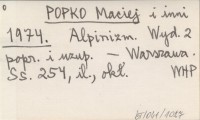 POPKO Maciej i inni
1974. Alpinizm. Wyd. 2
popr. i uzup. — Warszawa.
Ss. 254, il., okł. WHP